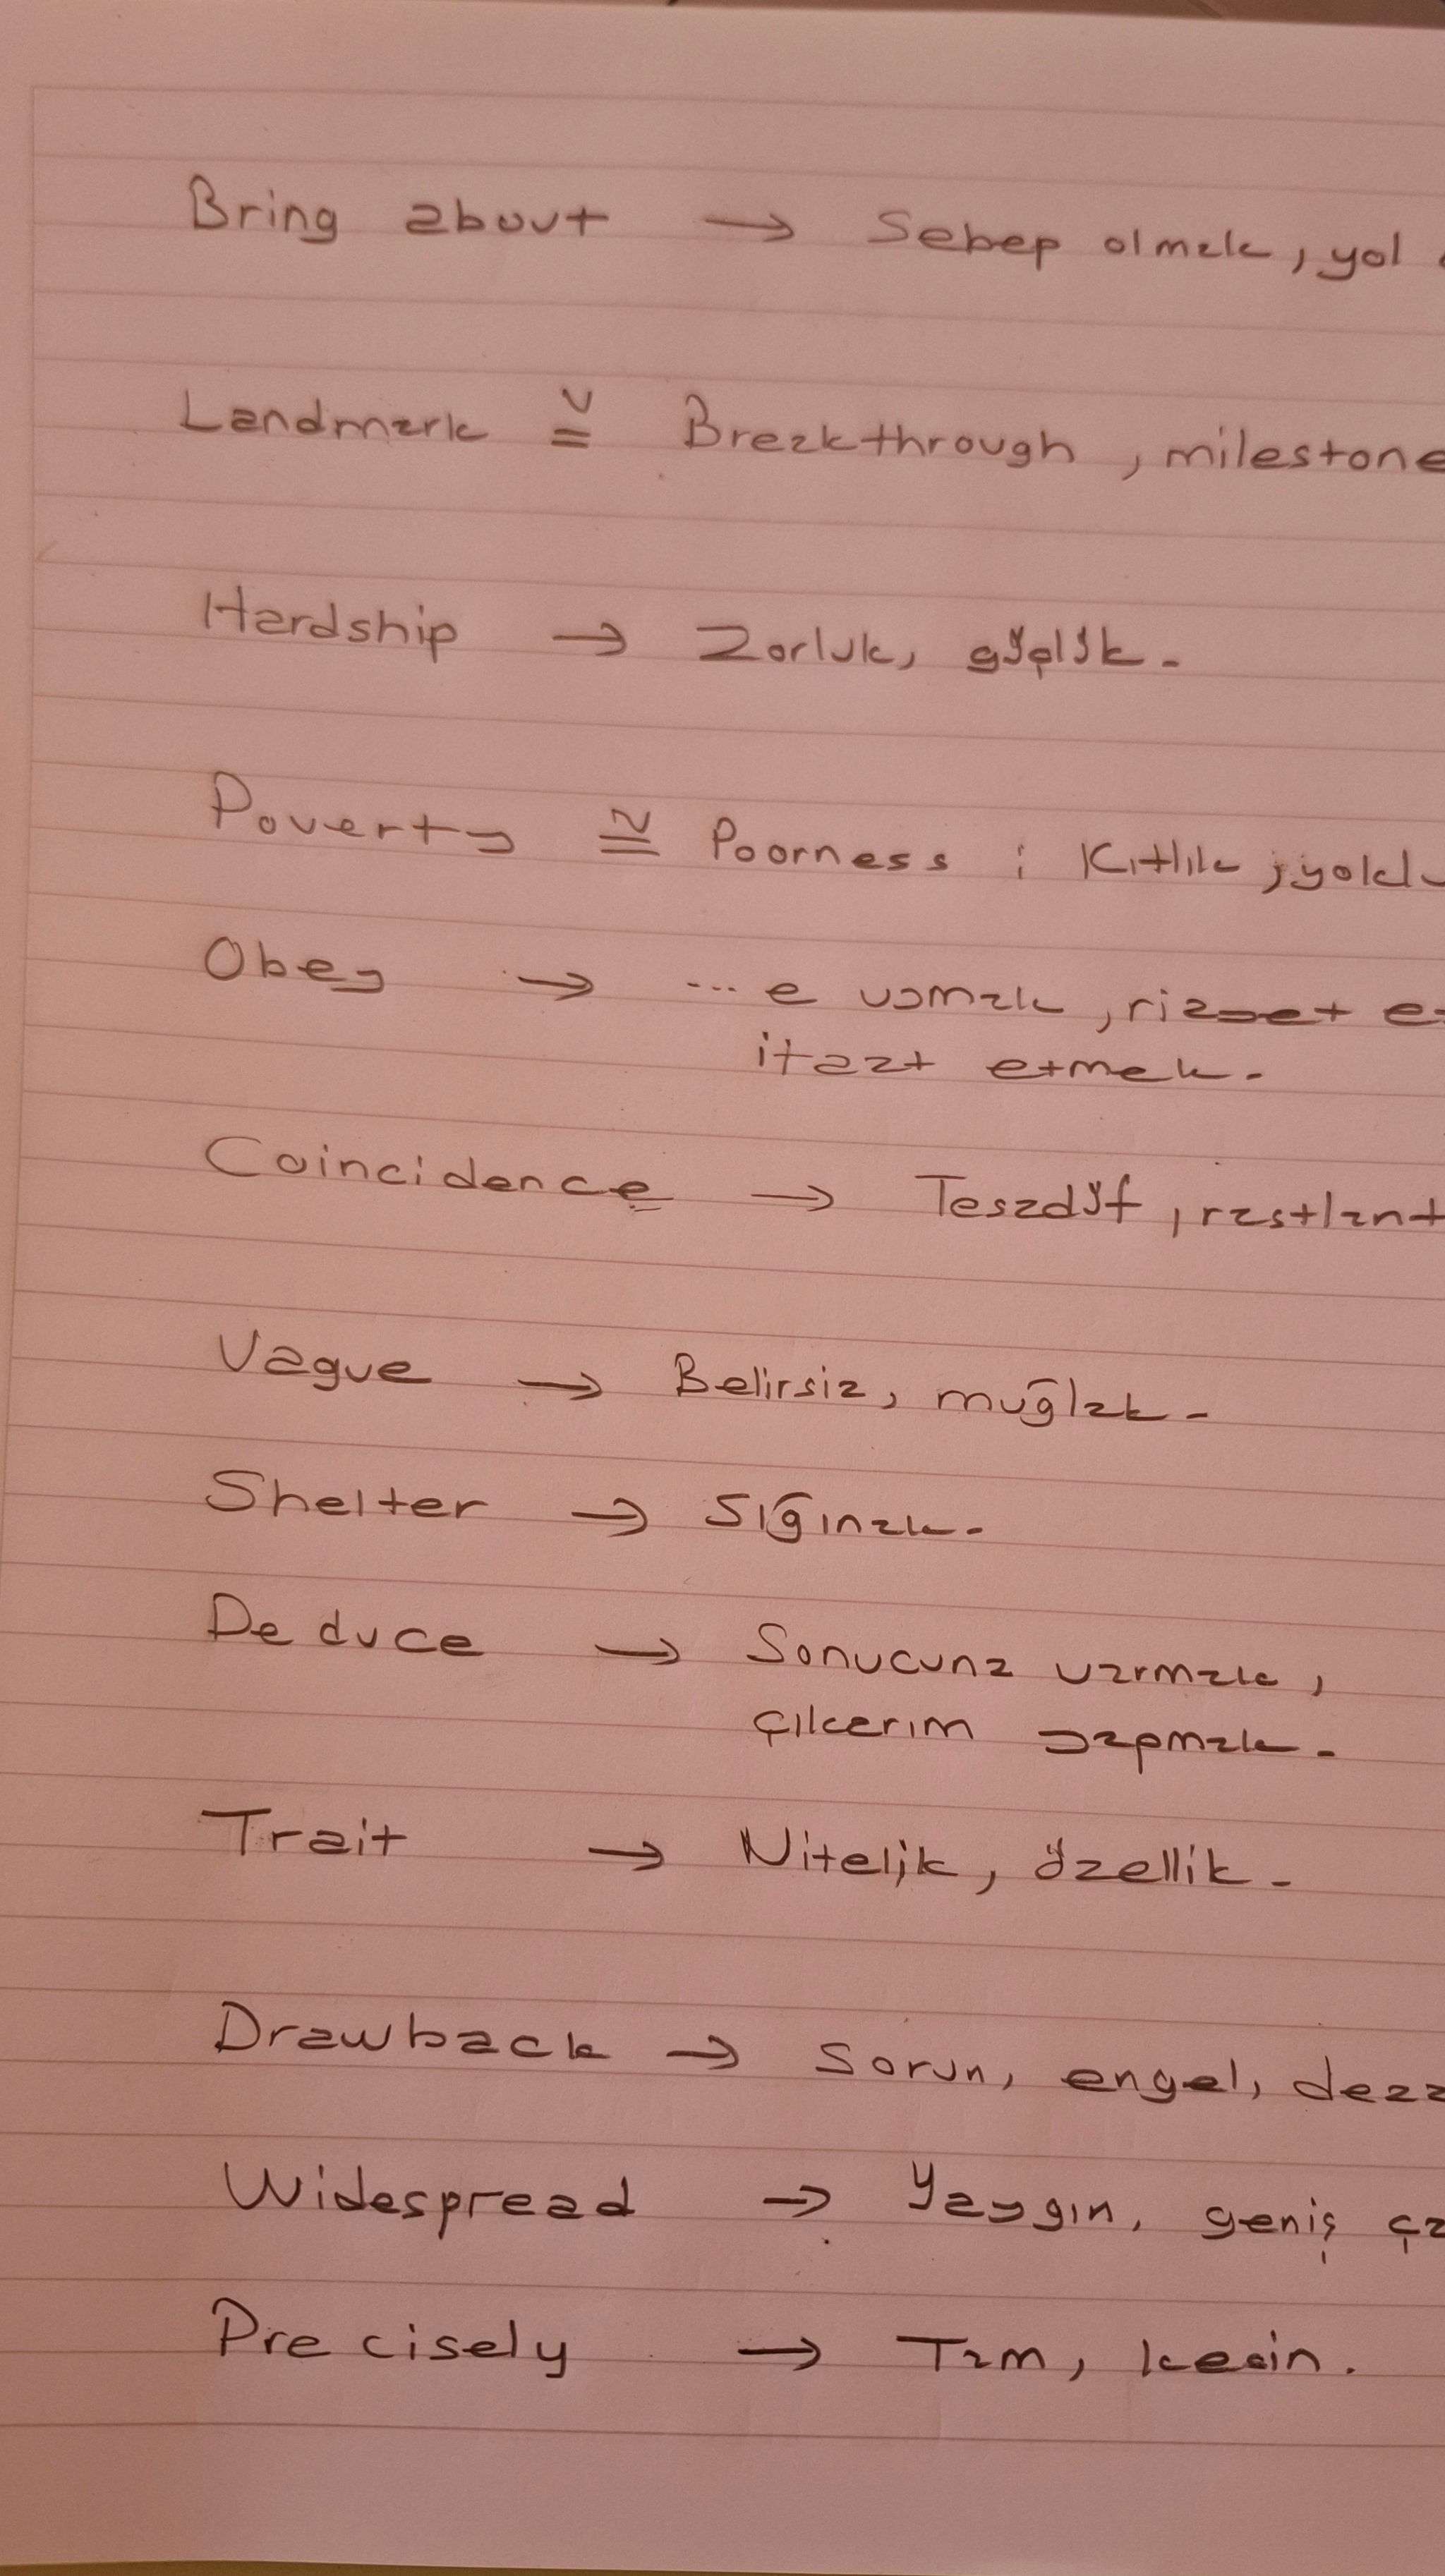 Bring about → Sebep olmak, yol
Landmark ≅ Breakthrough, milestone
Hardship → Zorluk, güçlük.
Poverty ≅ Poorness : Kıtlık, yoklu
Obey → ... e uymak, riayet e
itaat etmek.
Coincidence → Tesadüf, rastlant
Vague → Belirsiz, muğlak.
Shelter → Sığınak.
Deduce → Sonucuna varmak,
çıkarım yapmak.
Trait → Nitelik, özellik.
Drawback → Sorun, engel, deza
Widespread → Yaygın, geniş ça
Precisely → Tam, kesin.